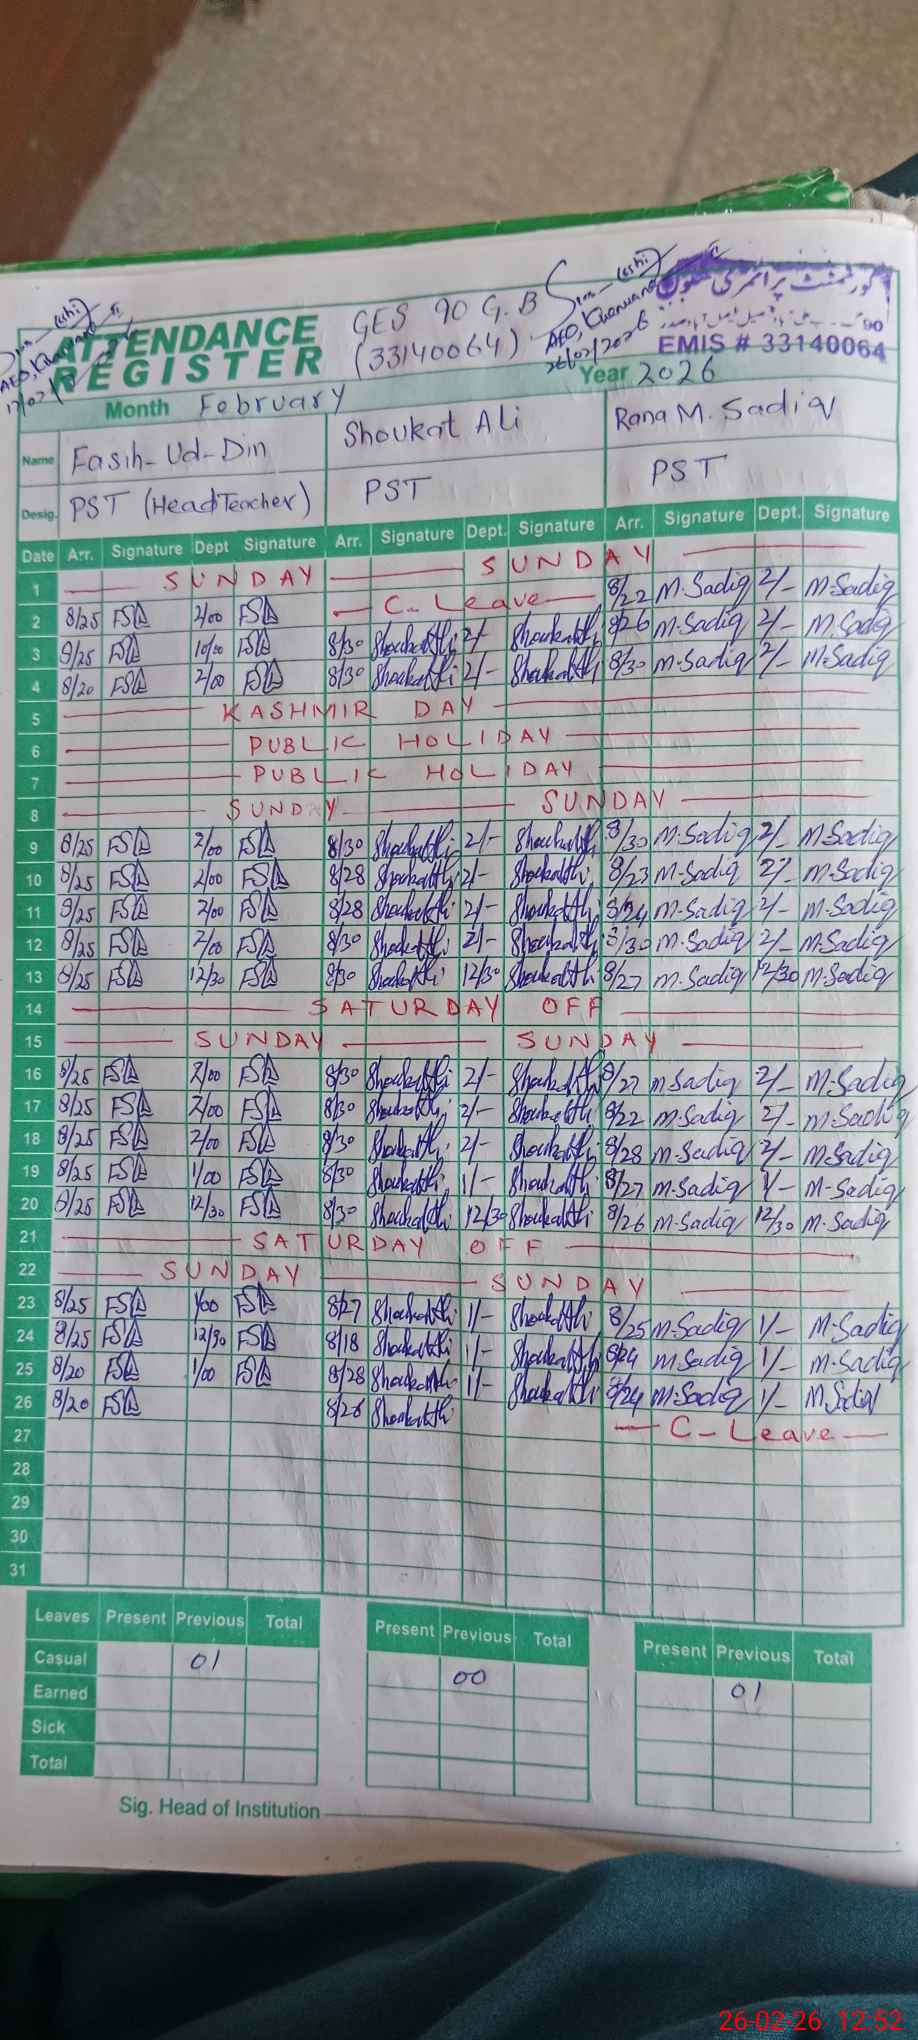 ATTENDANCE
REGISTER
GES 90 G.B
(33140064)
AEO, Khanuana
26/02/2026
گورنمنٹ پرائمری سکول
EMIS # 33140064
Month February
Year 2026
Name Fasih-Ud-Din Shoukat Ali Rana M. Sadiq
Desig. PST (Head Teacher) PST PST
Date Arr. Signature Dept Signature Arr. Signature Dept. Signature Arr. Signature Dept. Signature
1 SUNDAY SUNDAY
2 8/25 2/00 C-Leave 8/22 M.Sadiq 2/- M.Sadiq
3 8/25 10/00 8/30 Shoukat Ali 2/- Shoukat Ali 8/26 M.Sadiq 2/- M.Sadiq
4 8/20 2/00 8/30 Shoukat Ali 2/- Shoukat Ali 8/30 M.Sadiq 2/- M.Sadiq
5 KASHMIR DAY
6 PUBLIC HOLIDAY
7 PUBLIC HOLIDAY
8 SUNDAY SUNDAY
9 8/25 2/00 8/30 Shoukat Ali 2/- Shoukat Ali 8/30 M.Sadiq 2/- M.Sadiq
10 8/25 2/00 8/28 Shoukat Ali 2/- Shoukat Ali 8/23 M.Sadiq 2/- M.Sadiq
11 8/25 2/00 8/28 Shoukat Ali 2/- Shoukat Ali 8/24 M.Sadiq 2/- M.Sadiq
12 8/25 2/00 8/30 Shoukat Ali 2/- Shoukat Ali 8/30 M.Sadiq 2/- M.Sadiq
13 8/25 12/30 8/30 Shoukat Ali 12/30 Shoukat Ali 8/27 M.Sadiq 12/30 M.Sadiq
14 SATURDAY OFF
15 SUNDAY SUNDAY
16 8/25 2/00 8/30 Shoukat Ali 2/- Shoukat Ali 8/27 M.Sadiq 2/- M.Sadiq
17 8/25 2/00 8/30 Shoukat Ali 2/- Shoukat Ali 8/22 M.Sadiq 2/- M.Sadiq
18 8/25 2/00 8/30 Shoukat Ali 2/- Shoukat Ali 8/28 M.Sadiq 2/- M.Sadiq
19 8/25 1/00 8/30 Shoukat Ali 1/- Shoukat Ali 8/27 M.Sadiq 1/- M.Sadiq
20 8/25 12/30 8/30 Shoukat Ali 12/30 Shoukat Ali 8/26 M.Sadiq 12/30 M.Sadiq
21 SATURDAY OFF
22 SUNDAY SUNDAY
23 8/25 1/00 8/27 Shoukat Ali 1/- Shoukat Ali 8/25 M.Sadiq 1/- M.Sadiq
24 8/25 12/30 8/18 Shoukat Ali 1/- Shoukat Ali 8/24 M.Sadiq 1/- M.Sadiq
25 8/20 1/00 8/28 Shoukat Ali 1/- Shoukat Ali 8/24 M.Sadiq 1/- M.Sadiq
26 8/20 8/26 Shoukat Ali C-Leave
27
28
29
30
31
Leaves Present Previous Total Present Previous Total Present Previous Total
Casual 01 00 01
Earned
Sick
Total
Sig. Head of Institution
26-02-26 12:52